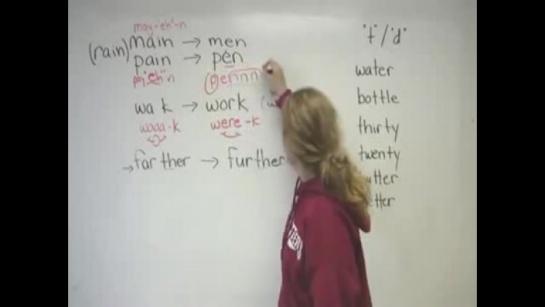 may-eh-n
(rain) main → men
pain → pen
pay-eh-n pennn
wa k → work
waaa-k were-k
→ far ther → further
't'/'d'
water
bottle
thirty
twenty